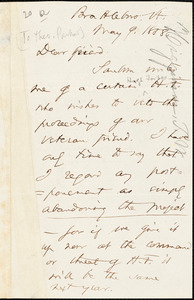 Brattleboro, Vt.
May 9. 1858
Dear friend
Sanborn writes
me of a certain H. F.
who wishes to veto the
proceedings of our
veteran friend. I have
only time to say that
I regard any post-
ponement as simply
abandoning the project
— for if we give it
up now at the command
or threat of H. F. it
will be the same
next year.